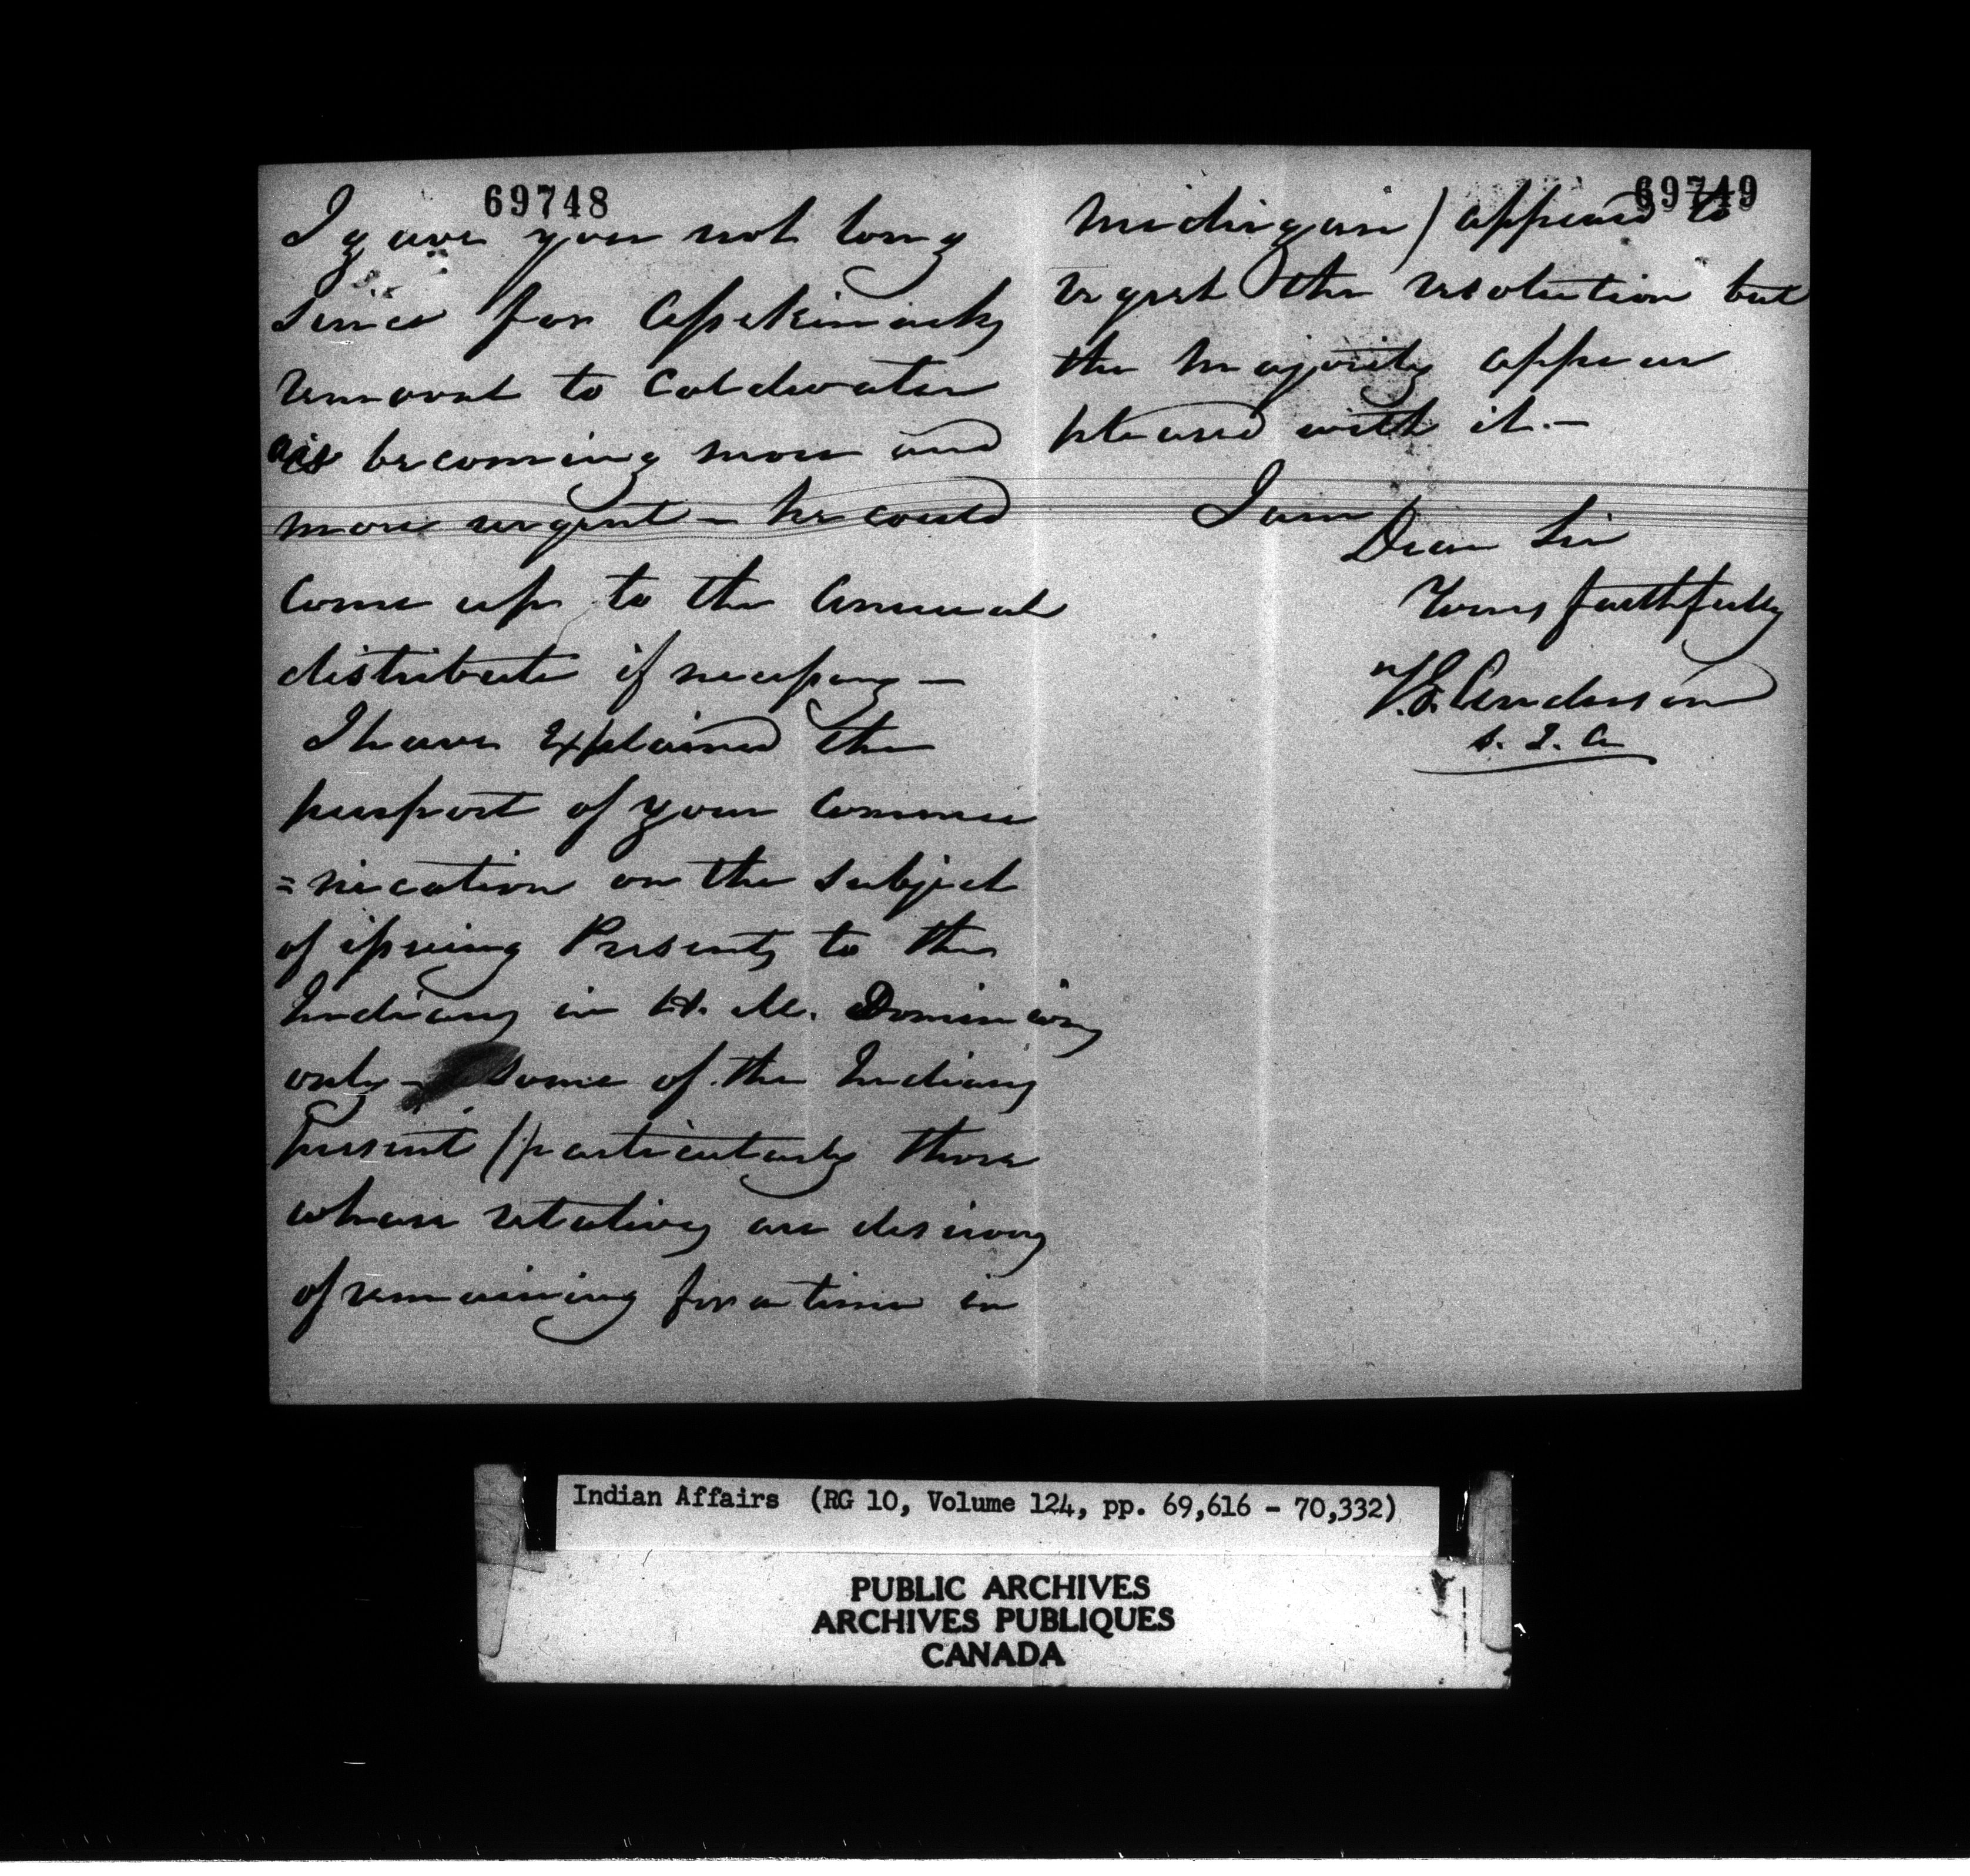 69748
I gave you not long
since for Assekinack's
removal to Coldwater
is becoming more and
more urgent – he could
come up to the annual
distribute if necessary –
I have explained the
purport of your commu
=nication on the subject
of issuing Presents to the
Indians in H. M. Dominions
only – some of the Indians
present (particularly those
whose relatives are desirous
of remaining for a time in
69749
Michigan) appeared to
regret the resolution but
the majority appear
pleased with it. –
I am
Dear Sir
Yours faithfully
T. G. Anderson
S. I. A
Indian Affairs (RG 10, Volume 124, pp. 69,616 - 70,332)
PUBLIC ARCHIVES
ARCHIVES PUBLIQUES
CANADA